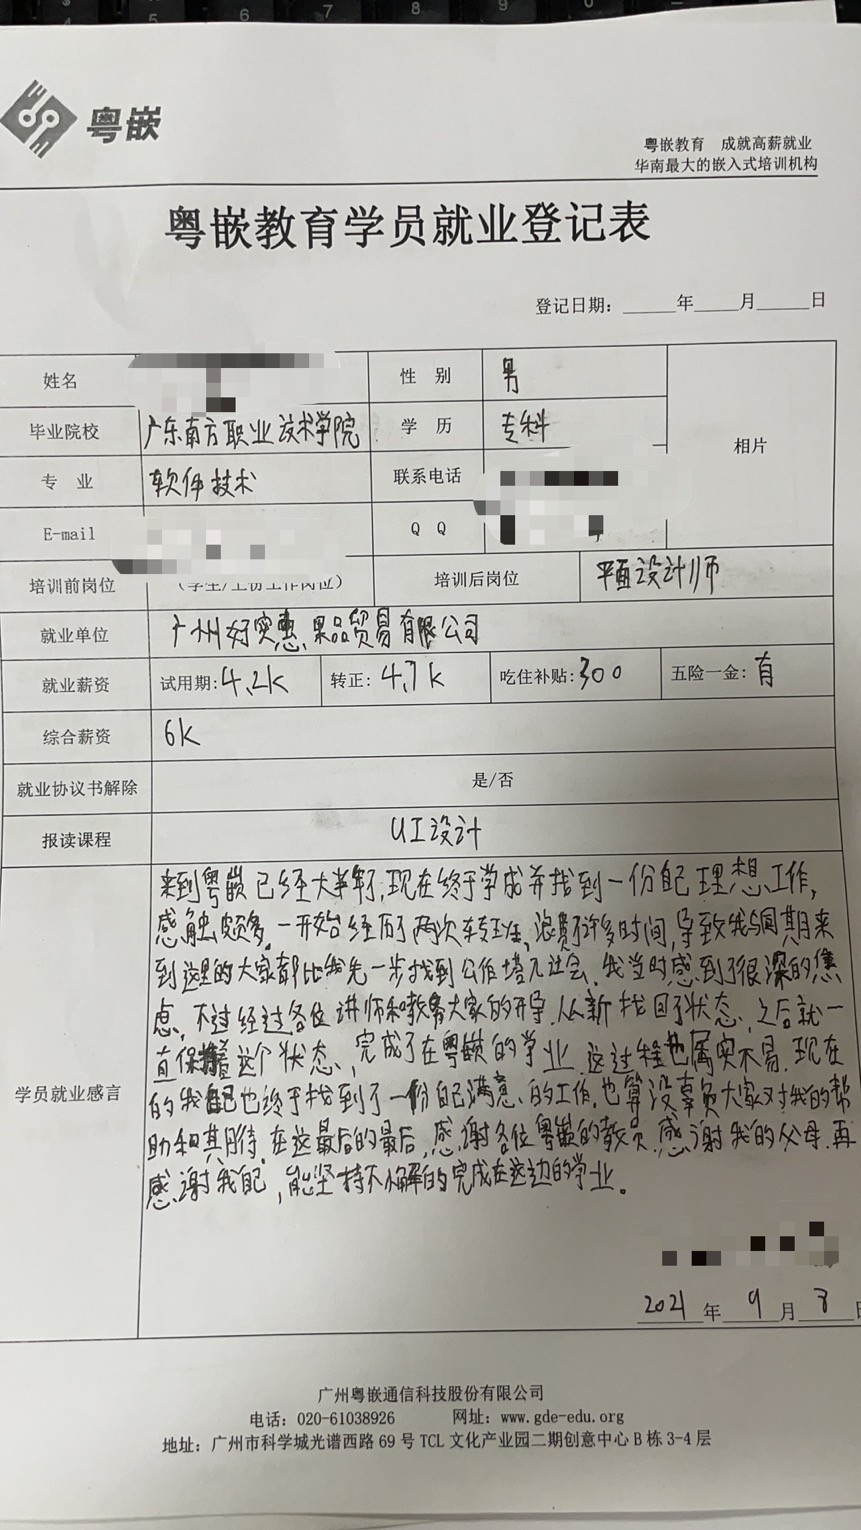 粤嵌
粤嵌教育 成就高薪就业
华南最大的嵌入式培训机构
粤嵌教育学员就业登记表
登记日期：______年_____月______日
姓名 性 别 男
毕业院校 广东南方职业技术学院 学 历 专科
相片
专 业 软件技术 联系电话
E-mail Q Q
培训前岗位 培训后岗位 平面设计师
就业单位 广州好实惠果品贸易有限公司
就业薪资 试用期：4.2K 转正：4.7K 吃住补贴：300 五险一金：有
综合薪资 6K
就业协议书解除 是/否
报读课程 UI设计
学员就业感言
来到粤嵌已经大半年了，现在终于学成并找到一份自己理想工作，
感触颇多。一开始经历了两次转班，浪费了许多时间，导致我与同期来
到这里的大家都比我先一步找到工作塔入社会，我当时感到了很深的焦
虑，不过经过各位讲师和教务大家的开导，从新找回了状态，之后就一
直保持着这个状态，完成了在粤嵌的学业，这过程也属实不易，现在
的我自己也终于找到了一份自己满意的工作，也算没辜负大家对我的帮
助和其期待，在这最后的最后，感谢各位粤嵌的教员，感谢我的父母，再
感谢我自己，能坚持不懈的完成在这边的学业。
2021 年 9 月 8 日
广州粤嵌通信科技股份有限公司
电话：020-61038926 网址：www.gde-edu.org
地址：广州市科学城光谱西路 69 号 TCL 文化产业园二期创意中心 B 栋 3-4 层